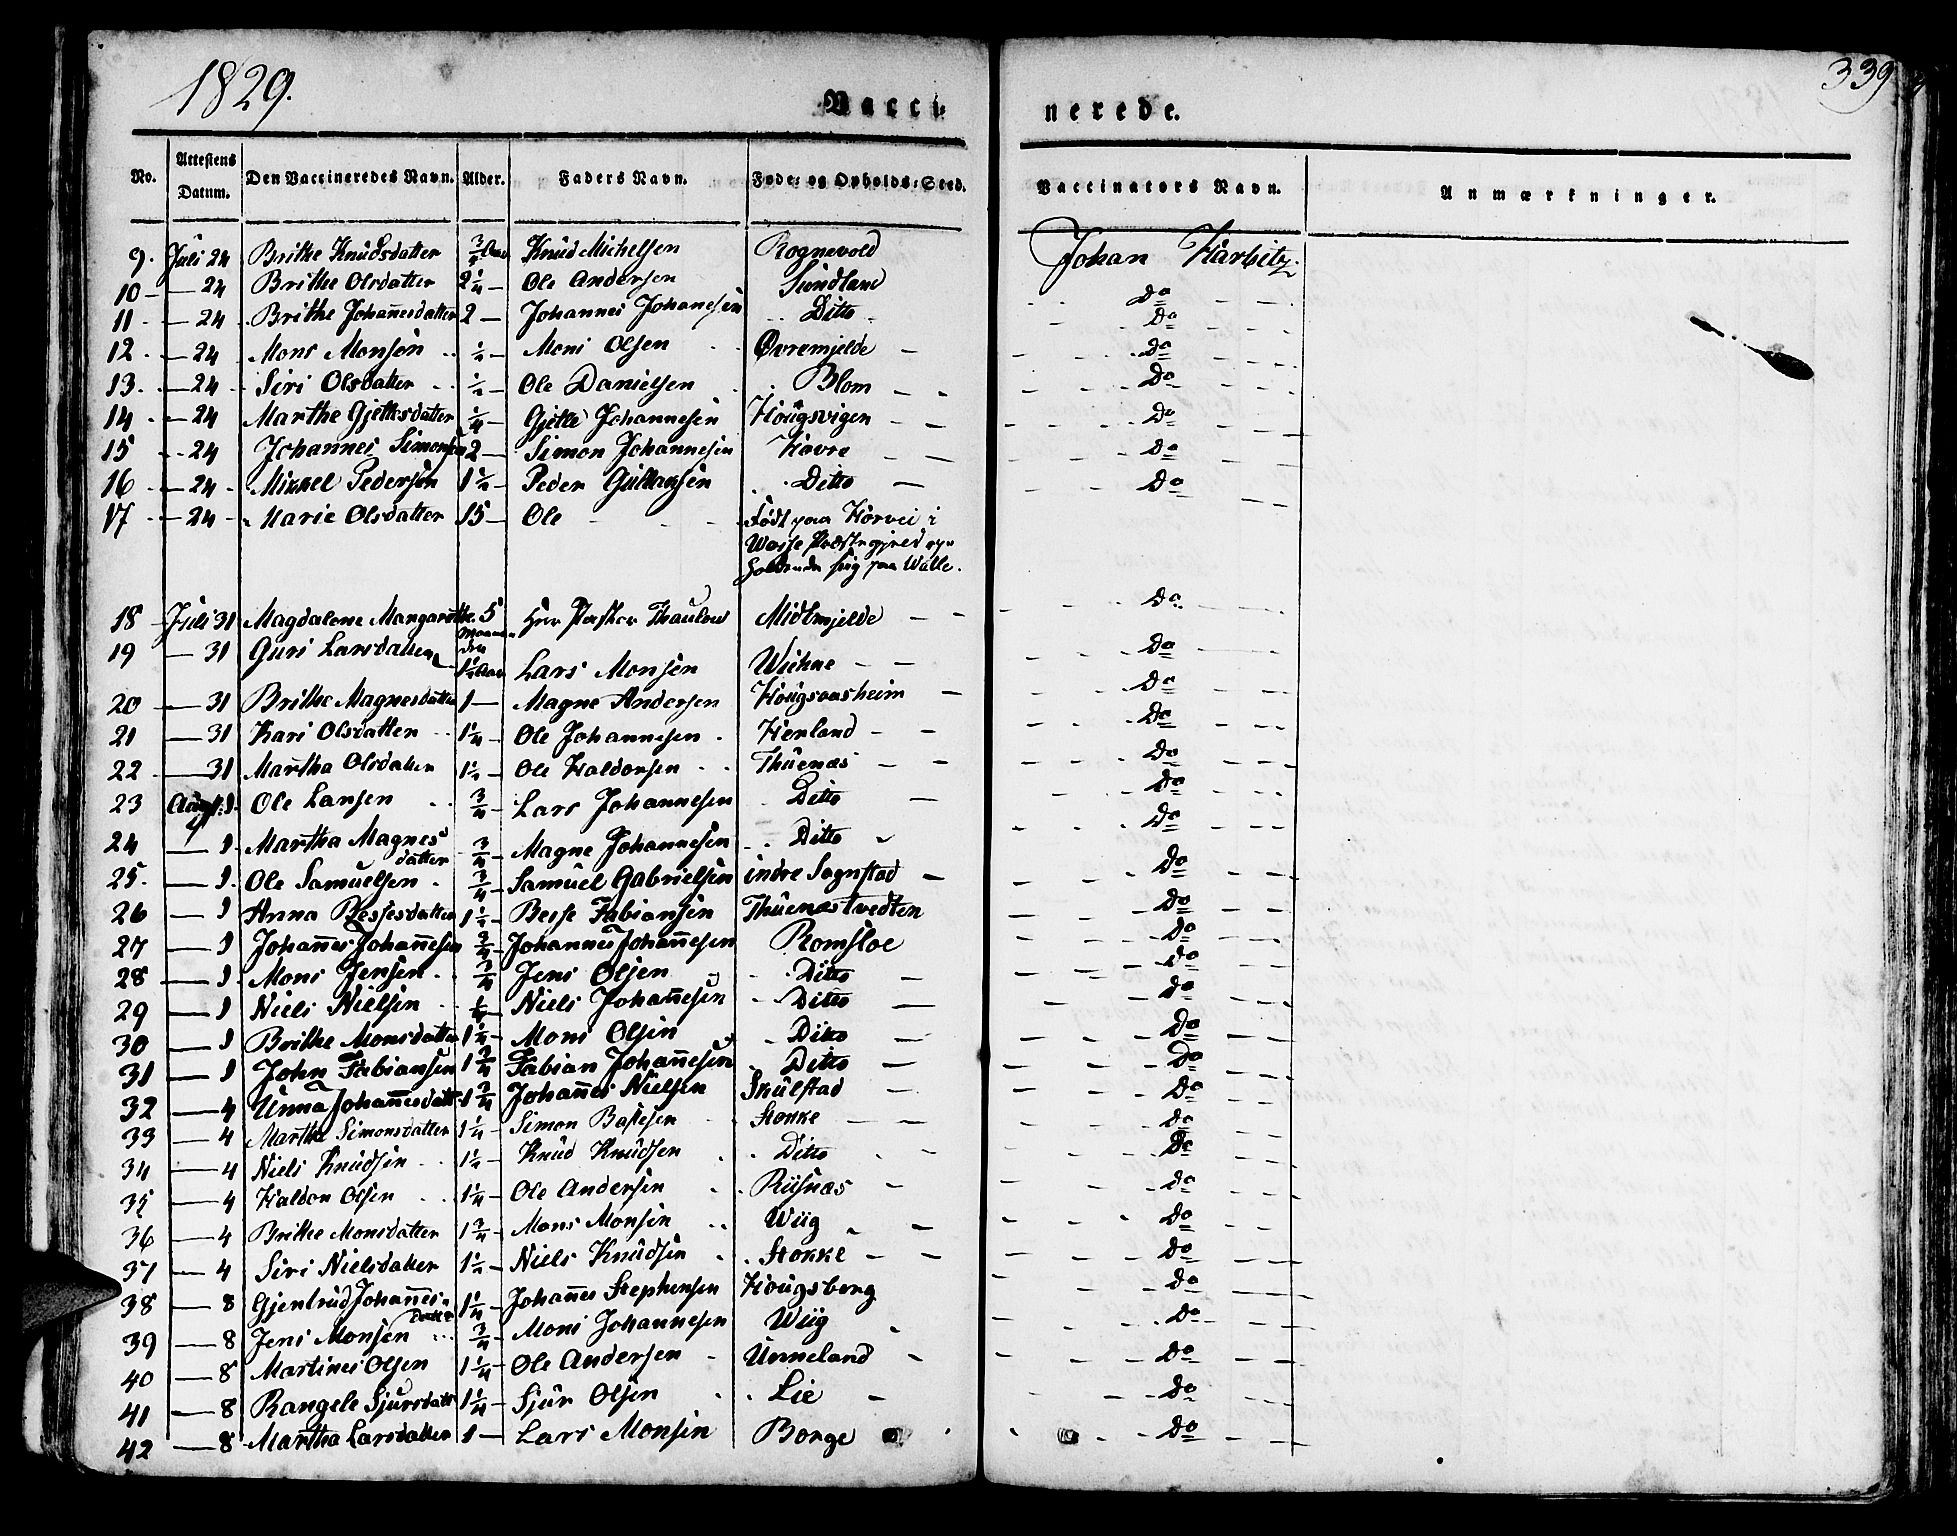 1829.
339
Vacci-nerede.
No. | Attestens Datum. | Den Vaccineredes Navn. | Alder. | Faders Navn. | Føde- og Opholds-Sted. | Vaccinators Navn. | Anmærkninger.
9. Juli 24 Brithe Knudsdatter 3/4 Aar Knud Michelsen Rognevold Johan Harbitz.
10 — 24 Brithe Olsdatter 2 1/4 — Ole Andersen Sundland Do
11 — 24 Brithe Johan̄esdatter 2 — Johannes Johanesen Ditto Do
12 — 24 Mons Monsen 1/2 — Mons Olsen Øvremjelde — Do
13 — 24 Siri Olsdatter 1/2 — Ole Danielsen Blom — Do
14 — 24 Marthe Gjettlesdatter 1/4 — Gjetle Johannesen Hougsvigen — Do
15 — 24 Johannes Simonsen 2 — Simon Johannesen Havre — Do
16 — 24 Mikkel Pedersen 1 1/2 — Peder Gulliksen Ditto — Do
17 — 24 Marie Olsdatter 15 — Ole — Født paa Horvei i
Præstegjeld og
paa Walle.
18 Juli 31 Magdalene Margarethe 5 Maaneder Herr Pastor Thaulow Midtmjelde — Do
19 — 31 Guri Larsdatter 1 1/2 Aar Lars Monsen Wiehne — Do
20 — 31 Brithe Magnesdatter 1 — Magne Andersen Hougsvasheim — Do
21 — 31 Kari Olsdatter 1 1/4 — Ole Johannesen Henland — Do
22 — 31 Martha Olsdatter 1 1/2 — Ole Haldorsen Thuenæs — Do
23 August 1. Ole Larsen 3/4 — Lars Johannesen Ditto — Do
24 — 1 Martha Magnesdatter 3/4 — Magne Johannesen Ditto Do
25. — 1. Ole Samuelsen 3/4 — Samuel Gabrielsen indre Sognstad — Do
26 — 1 Anna Bessesdatter 1 1/2 — Besse Fabiansen Thuenæstvedten Do
27 — 1 Johan̄es Johan̄esen 3/4 — Johannes Johan̄esen Romsloe Do
28 — 1 Mons Jensen 3/4 Jens Olsen Ditto — Do
29 — 1 Niels Nielsen — Niels Johan̄esen Ditto — Do
30 — 1 Brithe Monsdatter 1 1/2 — Mons Olsen Ditto — Do
31 — 1 John Fabiansen 1 3/4 Fabian Johan̄esen Ditto — Do
32 — 4 Unna Johan̄esdatt 1 3/4 Johan̄es Nielsen Skulstad — Do
33 — 4 Martha Simonsdatter 1 1/4 — Simon Stokke — Do
34 — 4 Niels Knudsen 1 1/2 — Knud Knudsen Ditto — Do
35 — 4 Haldor Olsen 1 1/4 — Ole Andersen Riisnæs — Do
36 — 4 Brithe Monsdatter 1 3/4 — Mons Monsen Wiig — Do
37 — 4 Siri Nielsdatter 1 1/2 — Niels Knudsen Stokke — Do
38 — 8 Gjertrud Johan̄esdatter 1 1/4 — Johan̄es Stephensen Hougsberg Do
39 — 8 Jens Monsen 3/4 — Mons Johannesen Wiig Do
40 — 8 Martines Olsen 1 1/4 — Ole Andersen Unneland — Do
41 — 8 Rangele Sjursdatt 1 1/4 — Sjur Olsen Lie — Do
42 — 8 Martha Larsdatter 1 — Lars Monsen Borge Do